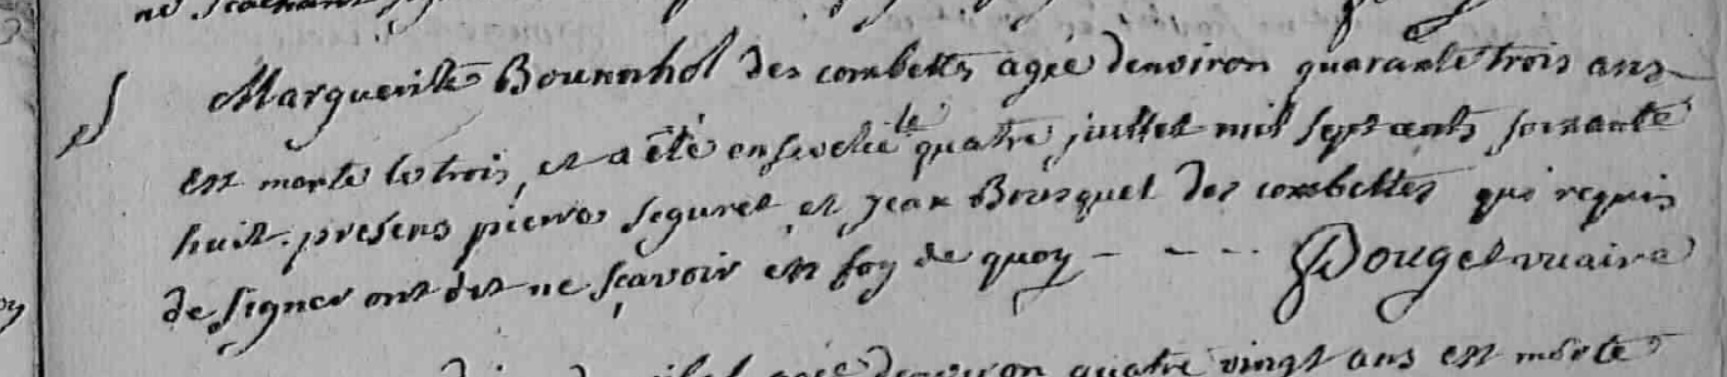 Marguerite Bounnhol des combettes agée denviron quarante trois ans
est morte le trois, et a été ensevelie le quatre juillet mil sept cents soixante
huit. presens pierre seguret et jean Bousquet des combettes qui requis
de signer ont dit ne sçavoir en foy de quoy - - - - Pouget vicaire
agée denviron quatre vingt ans est morte